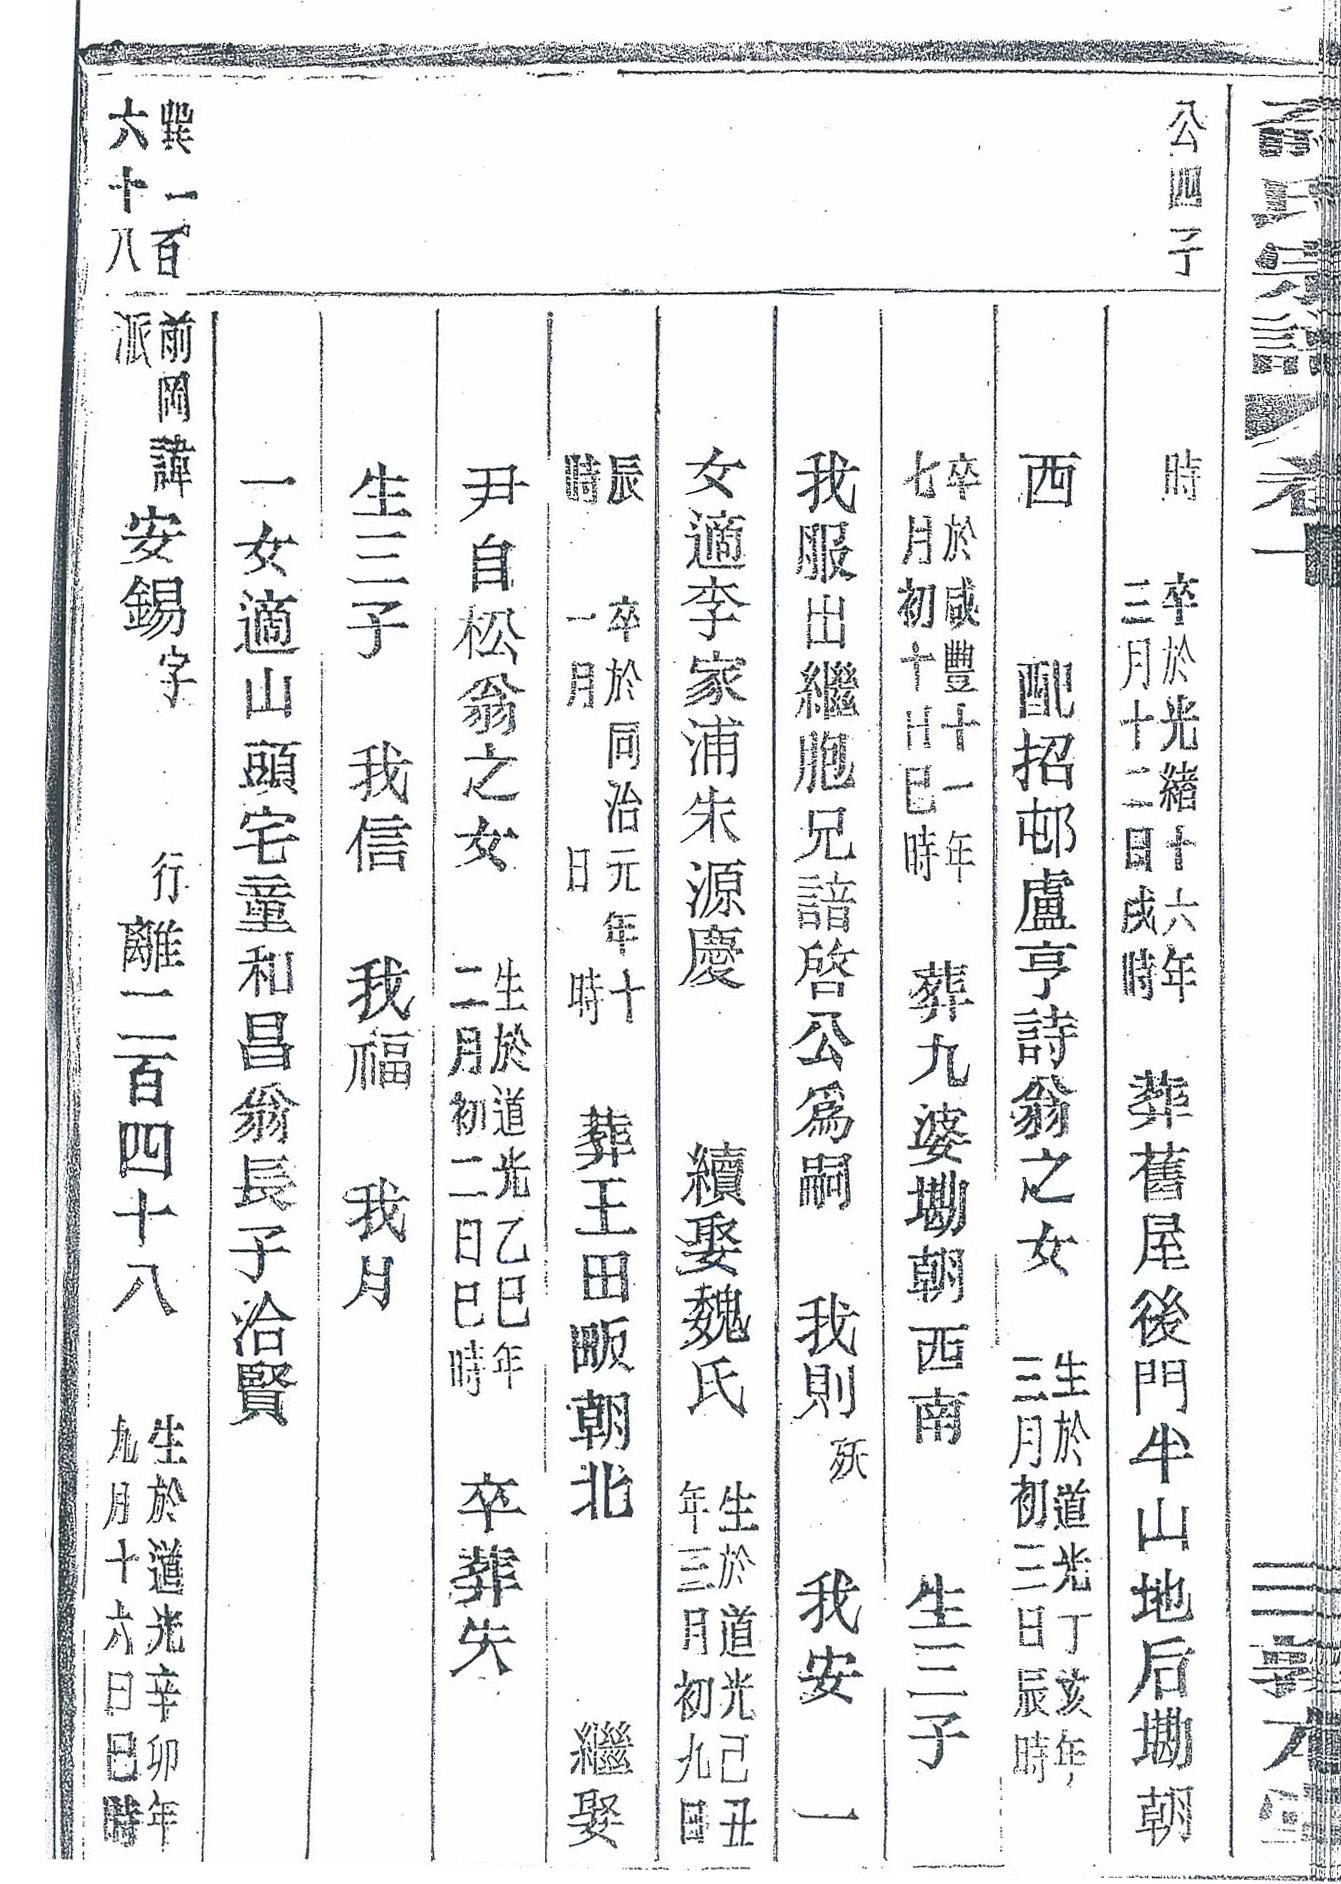 氏宗譜 卷一
公四子
時 卒於光緒十六年三月十二日戌時 葬舊屋後門半山地后墈朝
西 配招邨盧亨詩翁之女 生於道光丁亥年三月初三日辰時
卒於咸豐十一年七月初十日巳時 葬九婆墈朝西南 生三子
我服出繼胞兄諳啓公為嗣 我則殀 我安 一
女適李家浦朱源慶 續娶魏氏 生於道光己丑年三月初九日
辰時 卒於同治元年十一月 日 時 葬王田畈朝北 繼娶
尹自松翁之女 生於道光乙巳年二月初二日巳時 卒葬失
生三子 我信 我福 我月
一女適山頭宅童和昌翁長子洽賢
巽一百六十八
前岡派諱安錫字 行離二百四十八 生於道光辛卯年九月十六日巳時